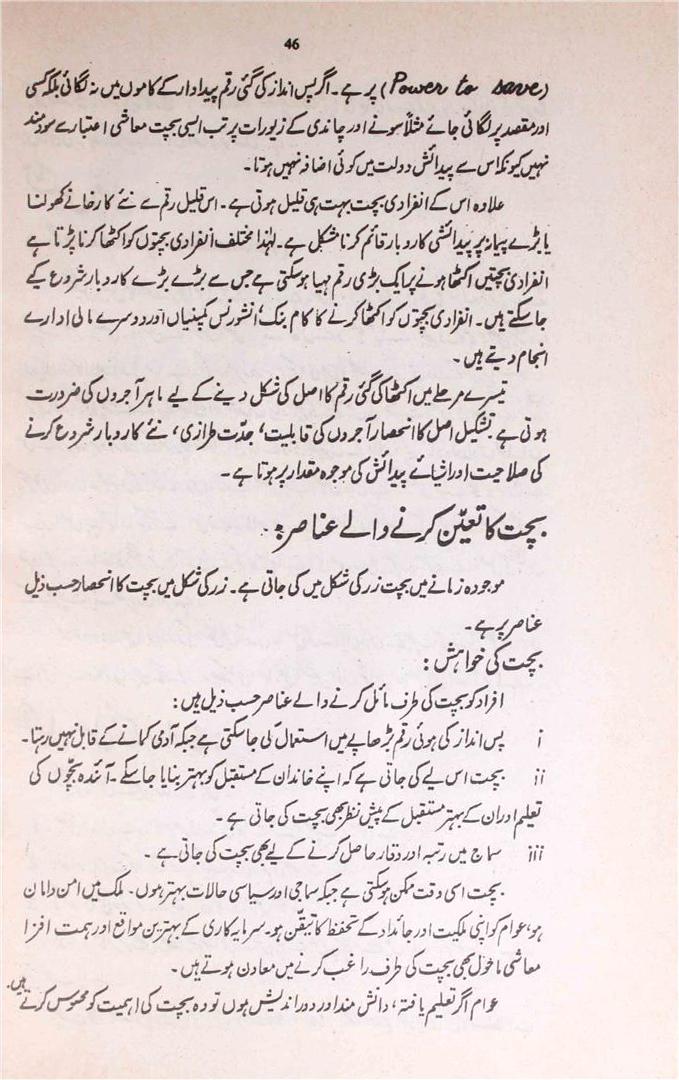 46
(Power to save) پر ہے۔ اگر پس انداز کی گئی رقم پیداوار کے کاموں میں نہ لگائی بلکہ کسی
اور مقصد پر لگائی جائے مثلاً سونے اور چاندی کے زیورات پر تب ایسی بچت معاشی اعتبار سے سودمند
نہیں کیونکہ اس سے پیدائش دولت میں کوئی اضافہ نہیں ہوتا۔
علاوہ اس کے انفرادی بچت بہت ہی قلیل ہوتی ہے۔ اس قلیل رقم سے نئے کارخانے کھولنا
یا بڑے پیمانہ پر پیدائشی کاروبار قائم کرنا مشکل ہے۔ لہٰذا مختلف انفرادی بچتوں کو اکٹھا کرنا پڑتا ہے
انفرادی بچتیں اکٹھا ہونے پر ایک بڑی رقم مہیا ہوسکتی ہے جس سے بڑے بڑے کاروبار شروع کیے
جاسکتے ہیں۔ انفرادی بچتوں کو اکٹھا کرنے کا کام بنک، انشورنس کمپنیاں اور دوسرے مالی ادارے
انجام دیتے ہیں۔
تیسرے مرحلے میں اکٹھا کی گئی رقم کا اصل کی شکل دینے کے لیے ماہر آجروں کی ضرورت
ہوتی ہے تشکیل اصل کا انحصار آجروں کی قابلیت، جدّت طرازی، نئے کاروبار شروع کرنے
کی صلاحیت اور اشیائے پیدائش کی موجودہ مقدار پر ہوتا ہے۔
بچت کا تعیّن کرنے والے عناصر:
موجودہ زمانے میں بچت زر کی شکل میں کی جاتی ہے۔ زر کی شکل میں بچت کا انحصار حسب ذیل
عناصر پر ہے۔
بچت کی خواہش:
افراد کو بچت کی طرف مائل کرنے والے عناصر حسب ذیل ہیں:
i پس انداز کی ہوئی رقم بڑھاپے میں استعمال کی جاسکتی ہے جبکہ آدمی کمانے کے قابل نہیں رہتا۔
ii بچت اس لیے کی جاتی ہے کہ اپنے خاندان کے مستقبل کو بہتر بنایا جاسکے۔ آئندہ بچّوں کی
تعلیم اور ان کے بہتر مستقبل کے پیش نظر بھی بچت کی جاتی ہے۔
iii سماج میں رتبہ اور وقار حاصل کرنے کے لیے بھی بچت کی جاتی ہے۔
بچت اسی وقت ممکن ہوسکتی ہے جبکہ سماجی اور سیاسی حالات بہتر ہوں۔ ملک میں امن و امان
ہو، عوام کو اپنی ملکیت اور جائداد کے تحفظ کا تیقّن ہو۔ سرمایہ کاری کے بہترین مواقع اور ہمت افزا
معاشی ماحول بھی بچت کی طرف راغب کرنے میں معاون ہوتے ہیں۔
عوام اگر تعلیم یافتہ، دانش مند اور دور اندیش ہوں تو وہ بچت کی اہمیت کو محسوس کرتے ہیں۔